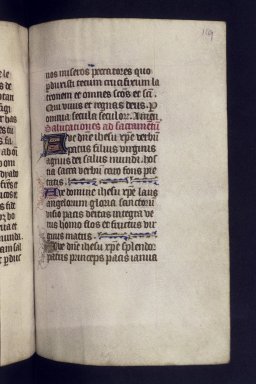 169
nos miseros peccatores quo
perduxisti tecum crucifixum la
tronem et omnes scōs et scā
Qui viuis et regnas deus. p
omnia secula seculoꝝ. Amen
Salutaciones ad sacramētū
Aue dn̄e ihesu xp̄e verbū
patris filius virginis
agnus dei salus mundi. hos
tia sacra verbū caro fons pie
tatis.
Aue domine ihesu xp̄e laus
angeloꝛum gloria sanctoꝝ
visio pacis deitas integra ve
rus homo flos et fructus vir
ginis matris.
Aue dn̄e ihesu xp̄e splendoꝛ
patris princeps pacis ianua